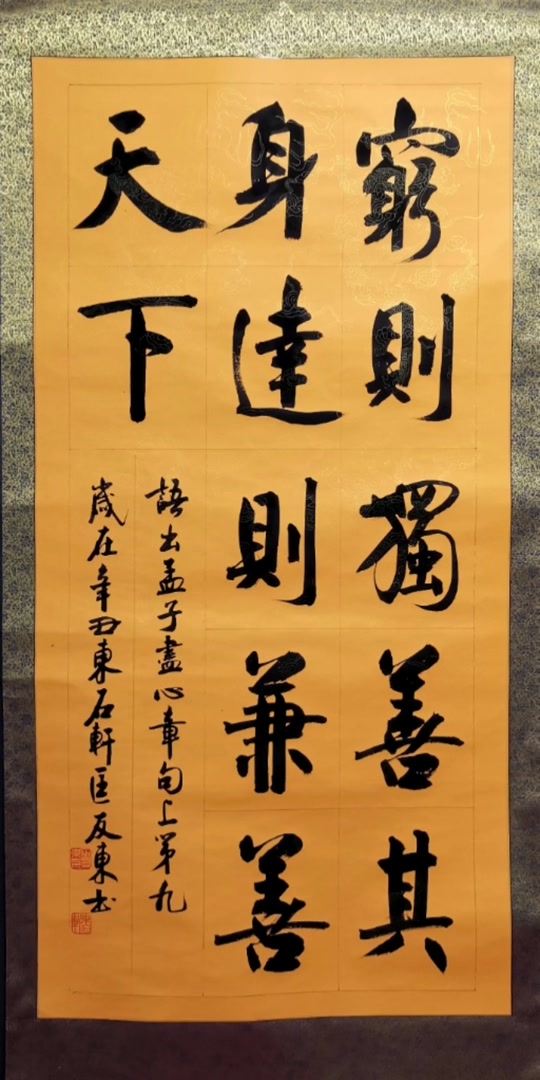 窮則獨善其
身達則兼善
天下
語出孟子盡心章句上第九
歲在辛丑東石軒匡反東书